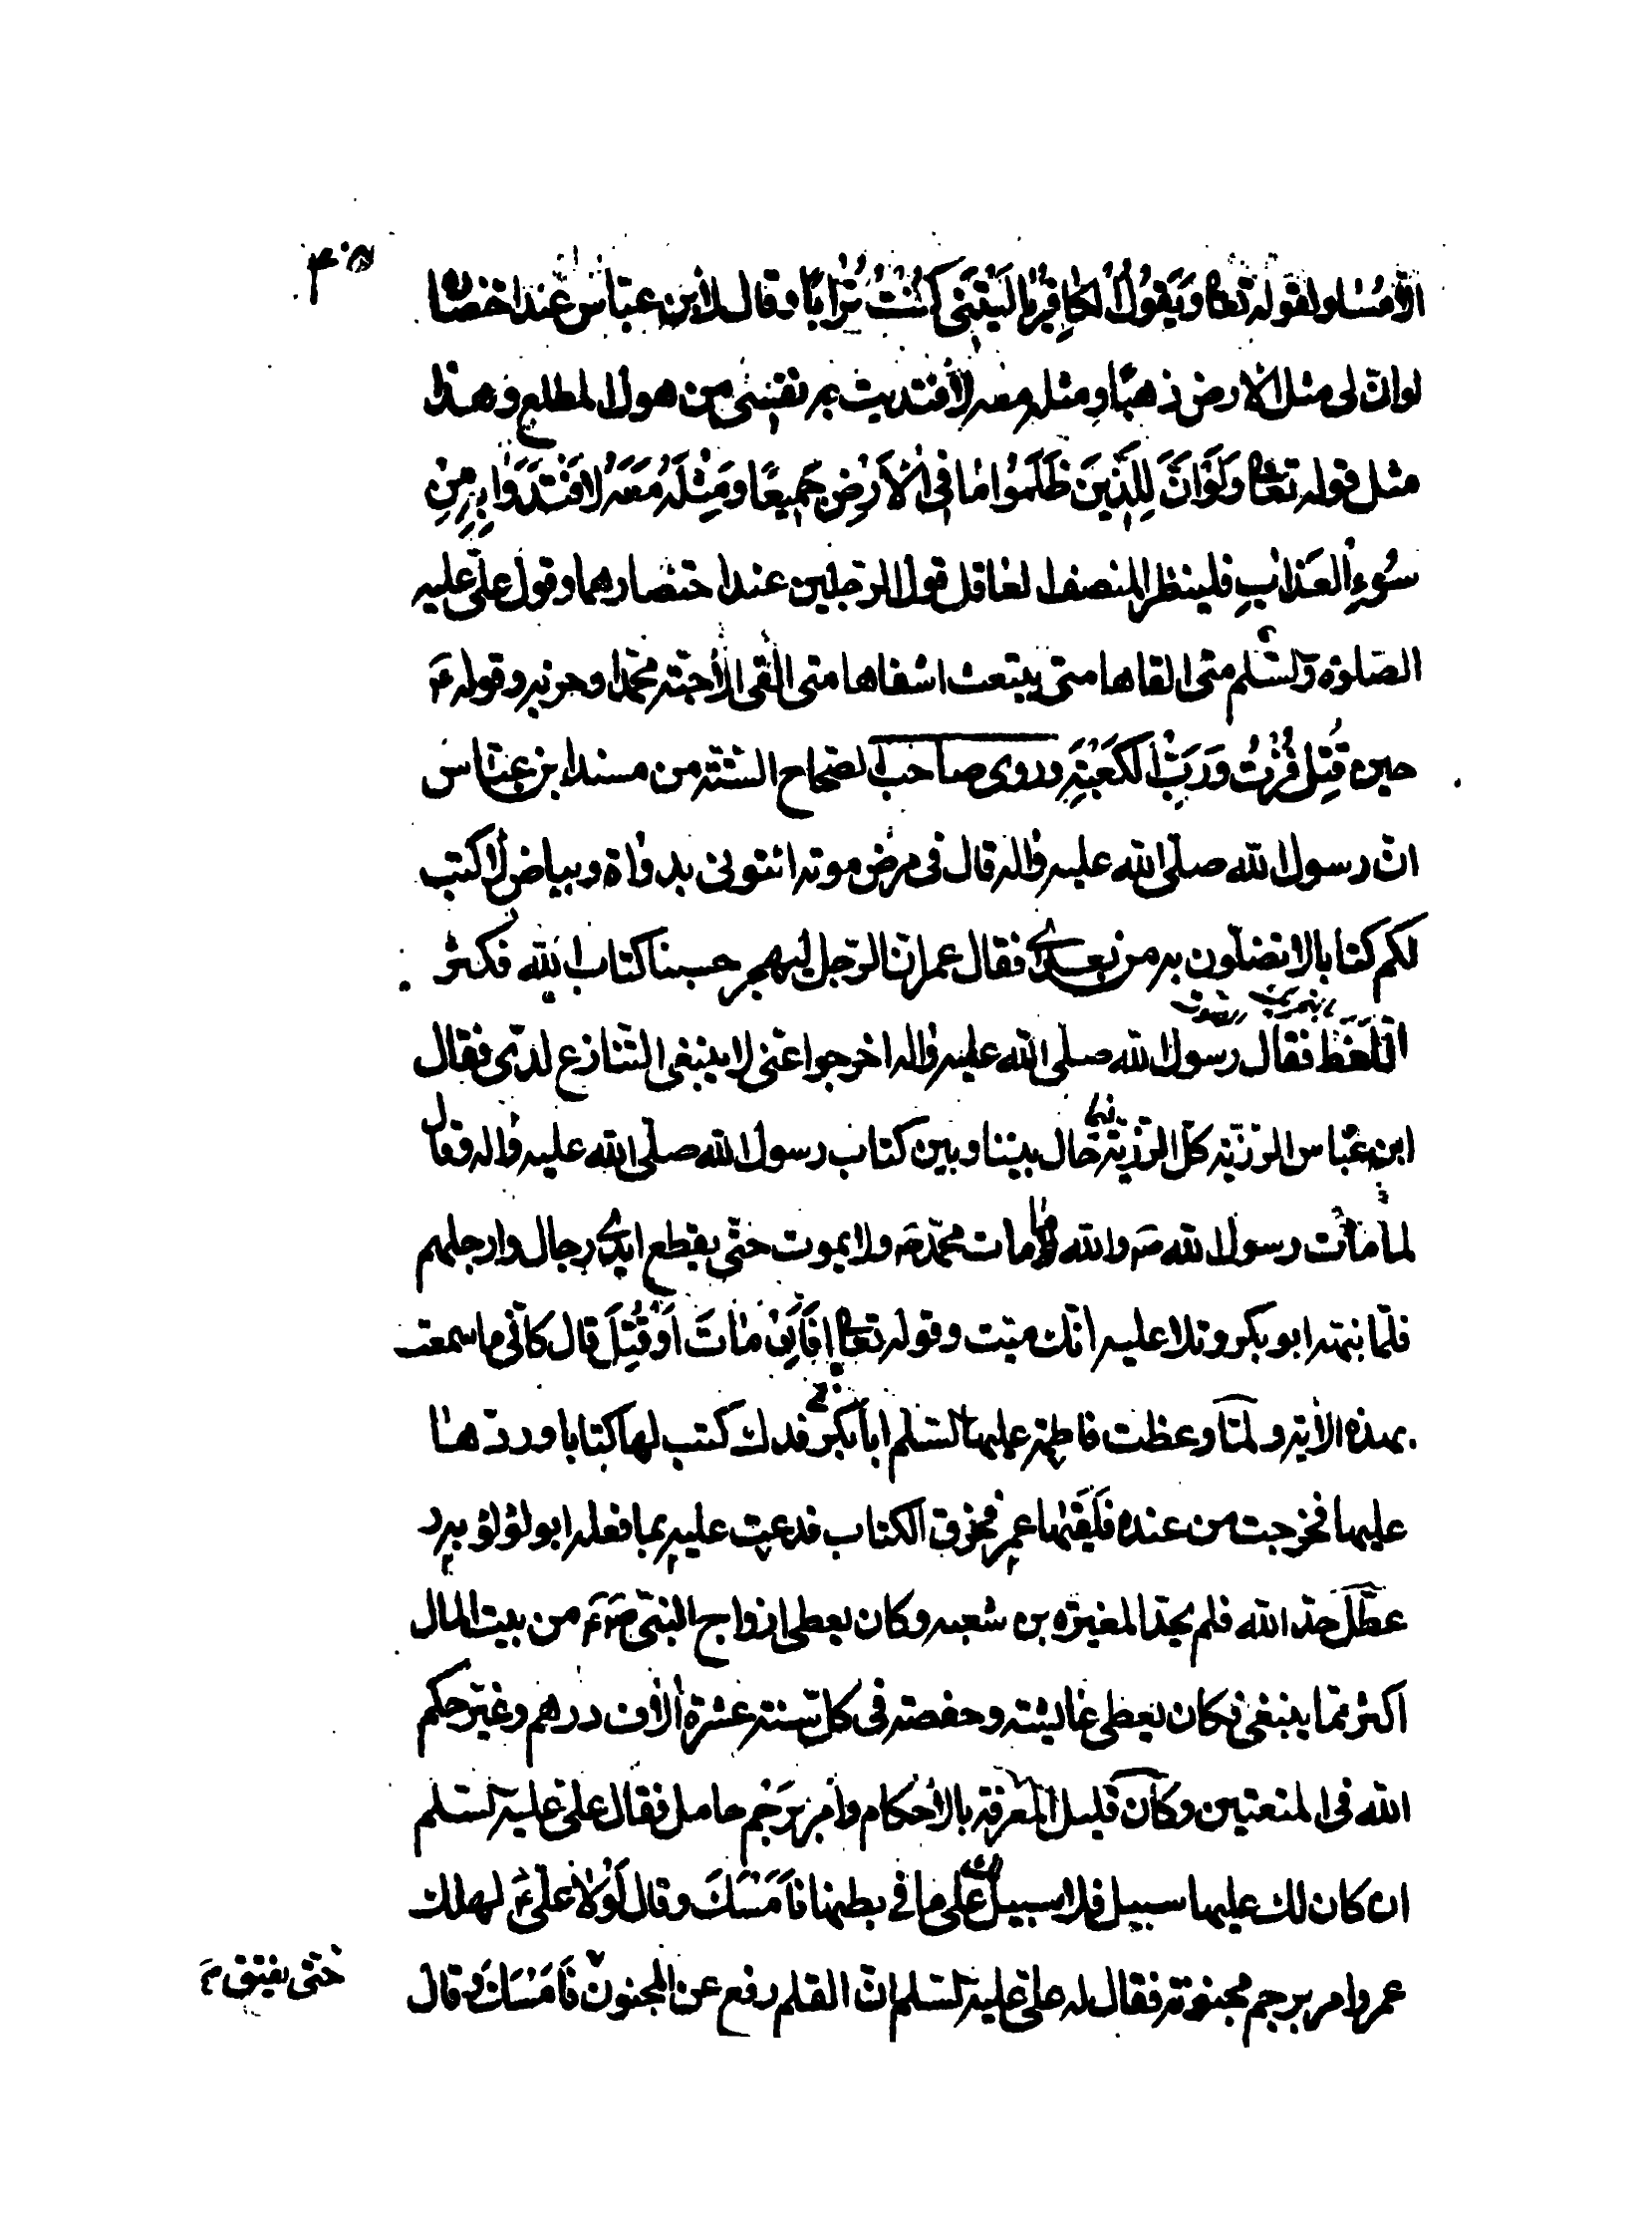 الّا مساو لقوله تعا وَيَقُولُ الكافِرُ يا لَيْتَنى كُنْتُ تُرابًا وقال لابن عبّاس عند احتضاره
لوانّ لى مثل الارض ذهبًا ومثله معه لافتديت به نفسى من هول المطلع وهذا
مثل قوله تعا وَلَوْ اَنَّ لِلَّذينَ ظَلَمُوا ما فِى الْاَرْضِ جَميعًا ومِثْلَهُ مَعَهُ لافْتَدَوْا بِهِ مِنْ
سُوءِ العَذابِ فلينظر المنصف العاقل قول الرجلين عند احتضارهما وقول علىّ عليه
الصّلوة والسّلم متى القاها متى يبتعث اشقاها متى القى الاحبّته محمّدا وحزبه وقوله ع
حين قُتِلَ فُزْتُ وَرَبِّ الْكَعْبَةِ وروى صاحب الصّحاح الستّة من مسند ابن عبّاس
انّ رسول الله صلّى الله عليه واله قال فى مرض موته ائتونى بدواة وبياض لاكتب
لكم كتابا لا تضلّون به من بعدى فقال عمر انّ الرّجل ليهجر حسبنا كتاب الله فكثر
اللَّغَط فقال رسول الله صلى الله عليه واله اخرجوا عنّى لا ينبغى التّنازع لدىّ فقال
ابن عبّاس الرزيّة كلّ الرّزيّة حال بيننا وبين كتاب رسول الله صلّى الله عليه واله وقال
لما مات رسول الله ص والله ما مات محمّد ص ولا يموت حتّى يقطع ايدى رجال وارجلهم
فلمّا نبّهه ابو بكر وتلا عليه انّك ميّت وقوله تعا اَفَاِنْ ماتَ اَوْ قُتِلَ قال كانّى ما سمعت
بهذه الاية ولمّا وعظت فاطمة عليها السّلم ابا بكر فى فدك كتب لها كتابا وردّها
عليها فخرجت من عنده فَلَقِيَها عمر فخرق الكتاب فدعت عليه بما فعله ابو لؤلؤ به و
عطّل حدّ الله فلم يحدّ المغيرة بن شعبه وكان يعطى ازواج النبّى ص من بيت المال
اكثر ممّا ينبغى فكان يعطى عايشة وحفصة فى كلّ سنة عشرة الاف درهم وغيّر حكم
الله فى المتعتين وكان قليل المعرفة بالاحكام وامر برَجْم حامل فقال على عليه السّلم
ان كان لك عليها سبيل فلا سبيل لك على ما فى بطنها فاَمْسَكَ وقال لَوْلا علىّ ع لهلك
عمر وامر برجم مجنونة فقال له علىّ عليه السّلم انّ القلم رفع عن المجنون فَاَمْسَكَ وقال
حتّى يفيق